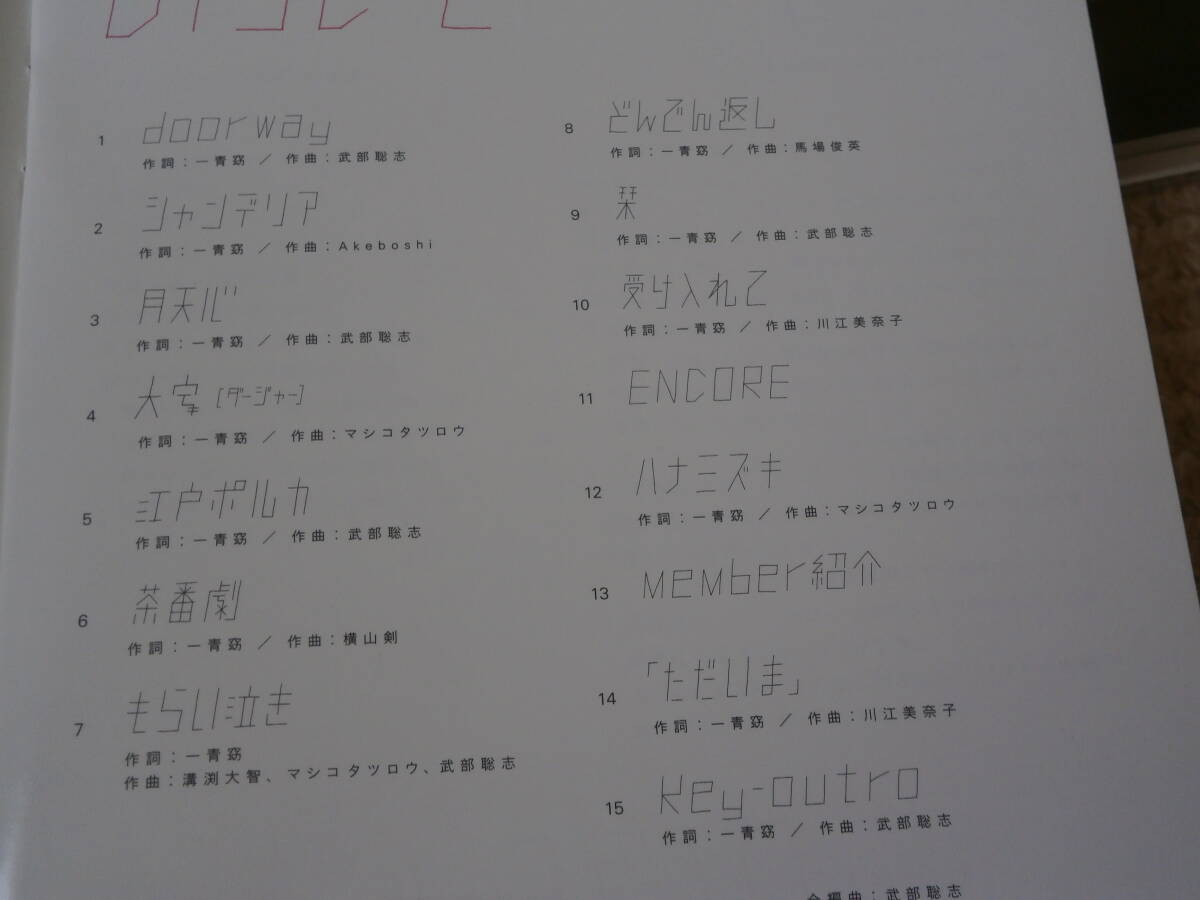 1 doorway
作詞：一青窈 ／ 作曲：武部聡志
2 シャンデリア
作詞：一青窈 ／ 作曲：Akeboshi
3 月天心
作詞：一青窈 ／ 作曲：武部聡志
4 大家 [ダージャー]
作詞：一青窈 ／ 作曲：マシコタツロウ
5 江戸ポルカ
作詞：一青窈 ／ 作曲：武部聡志
6 茶番劇
作詞：一青窈 ／ 作曲：横山剣
7 もらい泣き
作詞：一青窈
作曲：溝渕大智、マシコタツロウ、武部聡志
8 どんでん返し
作詞：一青窈 ／ 作曲：馬場俊英
9 栞
作詞：一青窈 ／ 作曲：武部聡志
10 受け入れて
作詞：一青窈 ／ 作曲：川江美奈子
11 ENCORE
12 ハナミズキ
作詞：一青窈 ／ 作曲：マシコタツロウ
13 Member紹介
14 「ただいま」
作詞：一青窈 ／ 作曲：川江美奈子
15 key-outro
作詞：一青窈 ／ 作曲：武部聡志
全編曲：武部聡志